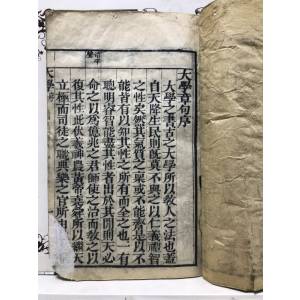 大學章句序
大學之書古之大學所以教人之法也蓋
自天降生民則旣莫不與之以仁義禮智
之性矣然其氣質之稟或不能齊是以不
能皆有以知其性之所有而全之也一有
聰明睿智能盡其性者出於其閒則天必
命之以爲億兆之君師使之治而教之以
復其性此伏羲神農黃帝堯舜所以繼天
立極而司徒之職典樂之官所由
大學序